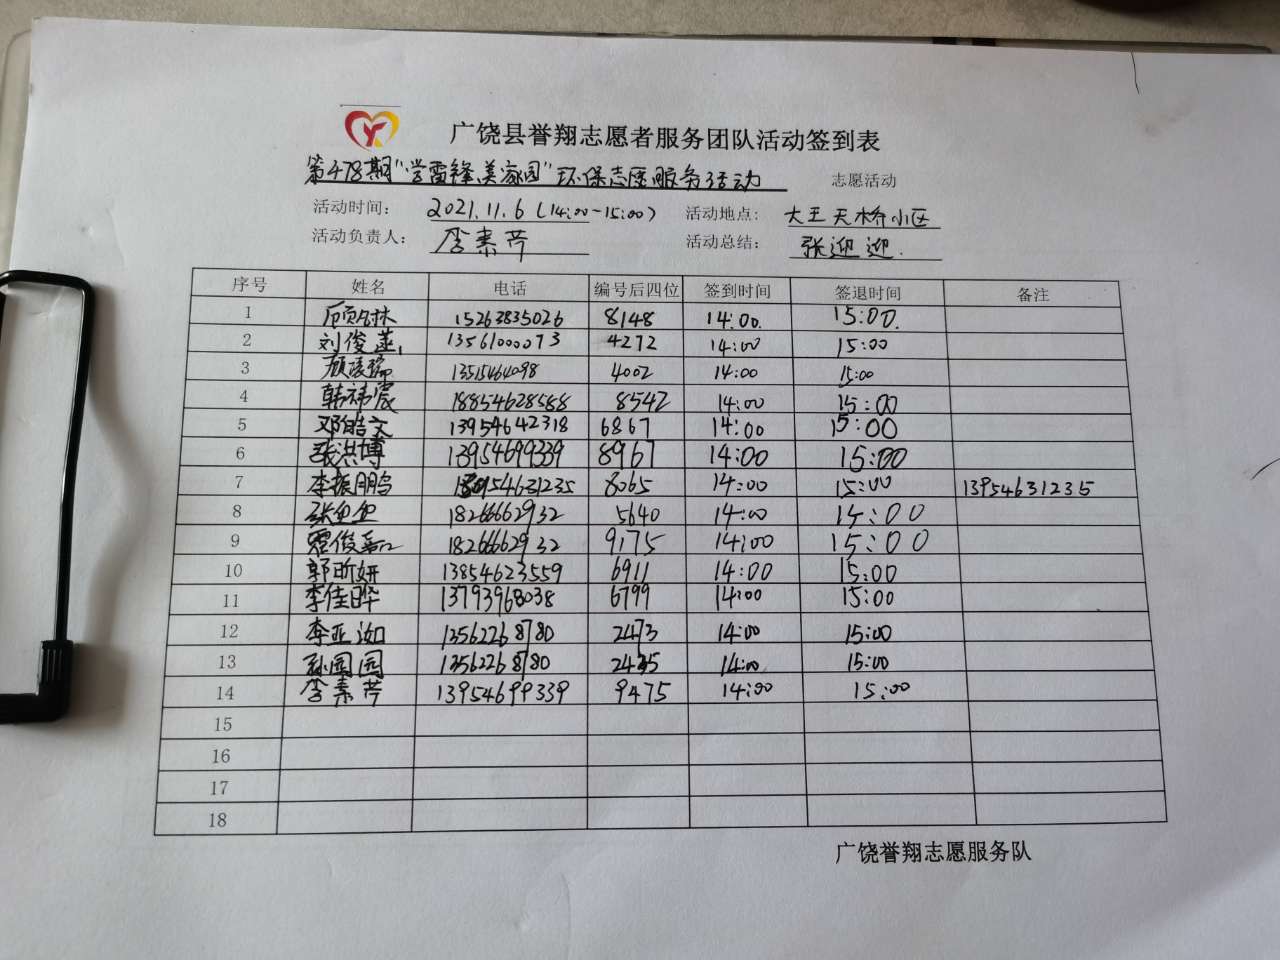 广饶县誉翔志愿者服务团队活动签到表
第478期"学雷锋,美家园"环保志愿服务活动 志愿活动
活动时间: 2021.11.6(14:00-15:00) 活动地点: 大王天桥小区
活动负责人: 李素芹 活动总结: 张迎迎.
序号 姓名 电话 编号后四位 签到时间 签退时间 备注
1 15263835026 8148 14:00. 15:00.
2 刘俊 13561000073 4272 14:00 15:00
3 顾凌瑞 13515464098 4002 14:00 15:00
4 韩祎宸 18854628588 8542 14:00 15:00
5 邓皓文 13954642318 6867 14:00 15:00
6 张洪博 13954699339 8967 14:00 15:00
7 李振鹏 154631235 8065 14:00 15:00 13954631235
8 张 18266662932 5640 14:00 15:00
9 18266662932 9175 14:00 15:00
10 郭昕妍 13854623559 6911 14:00 15:00
11 李佳晔 13793968038 6799 14:00 15:00
12 李亚汝 13562268780 2473 14:00 15:00
13 孙园园 13562268780 2435 14:00 15:00
14 李素芹 13954699339 9475 14:00 15:00
15
16
17
18
广饶誉翔志愿服务队